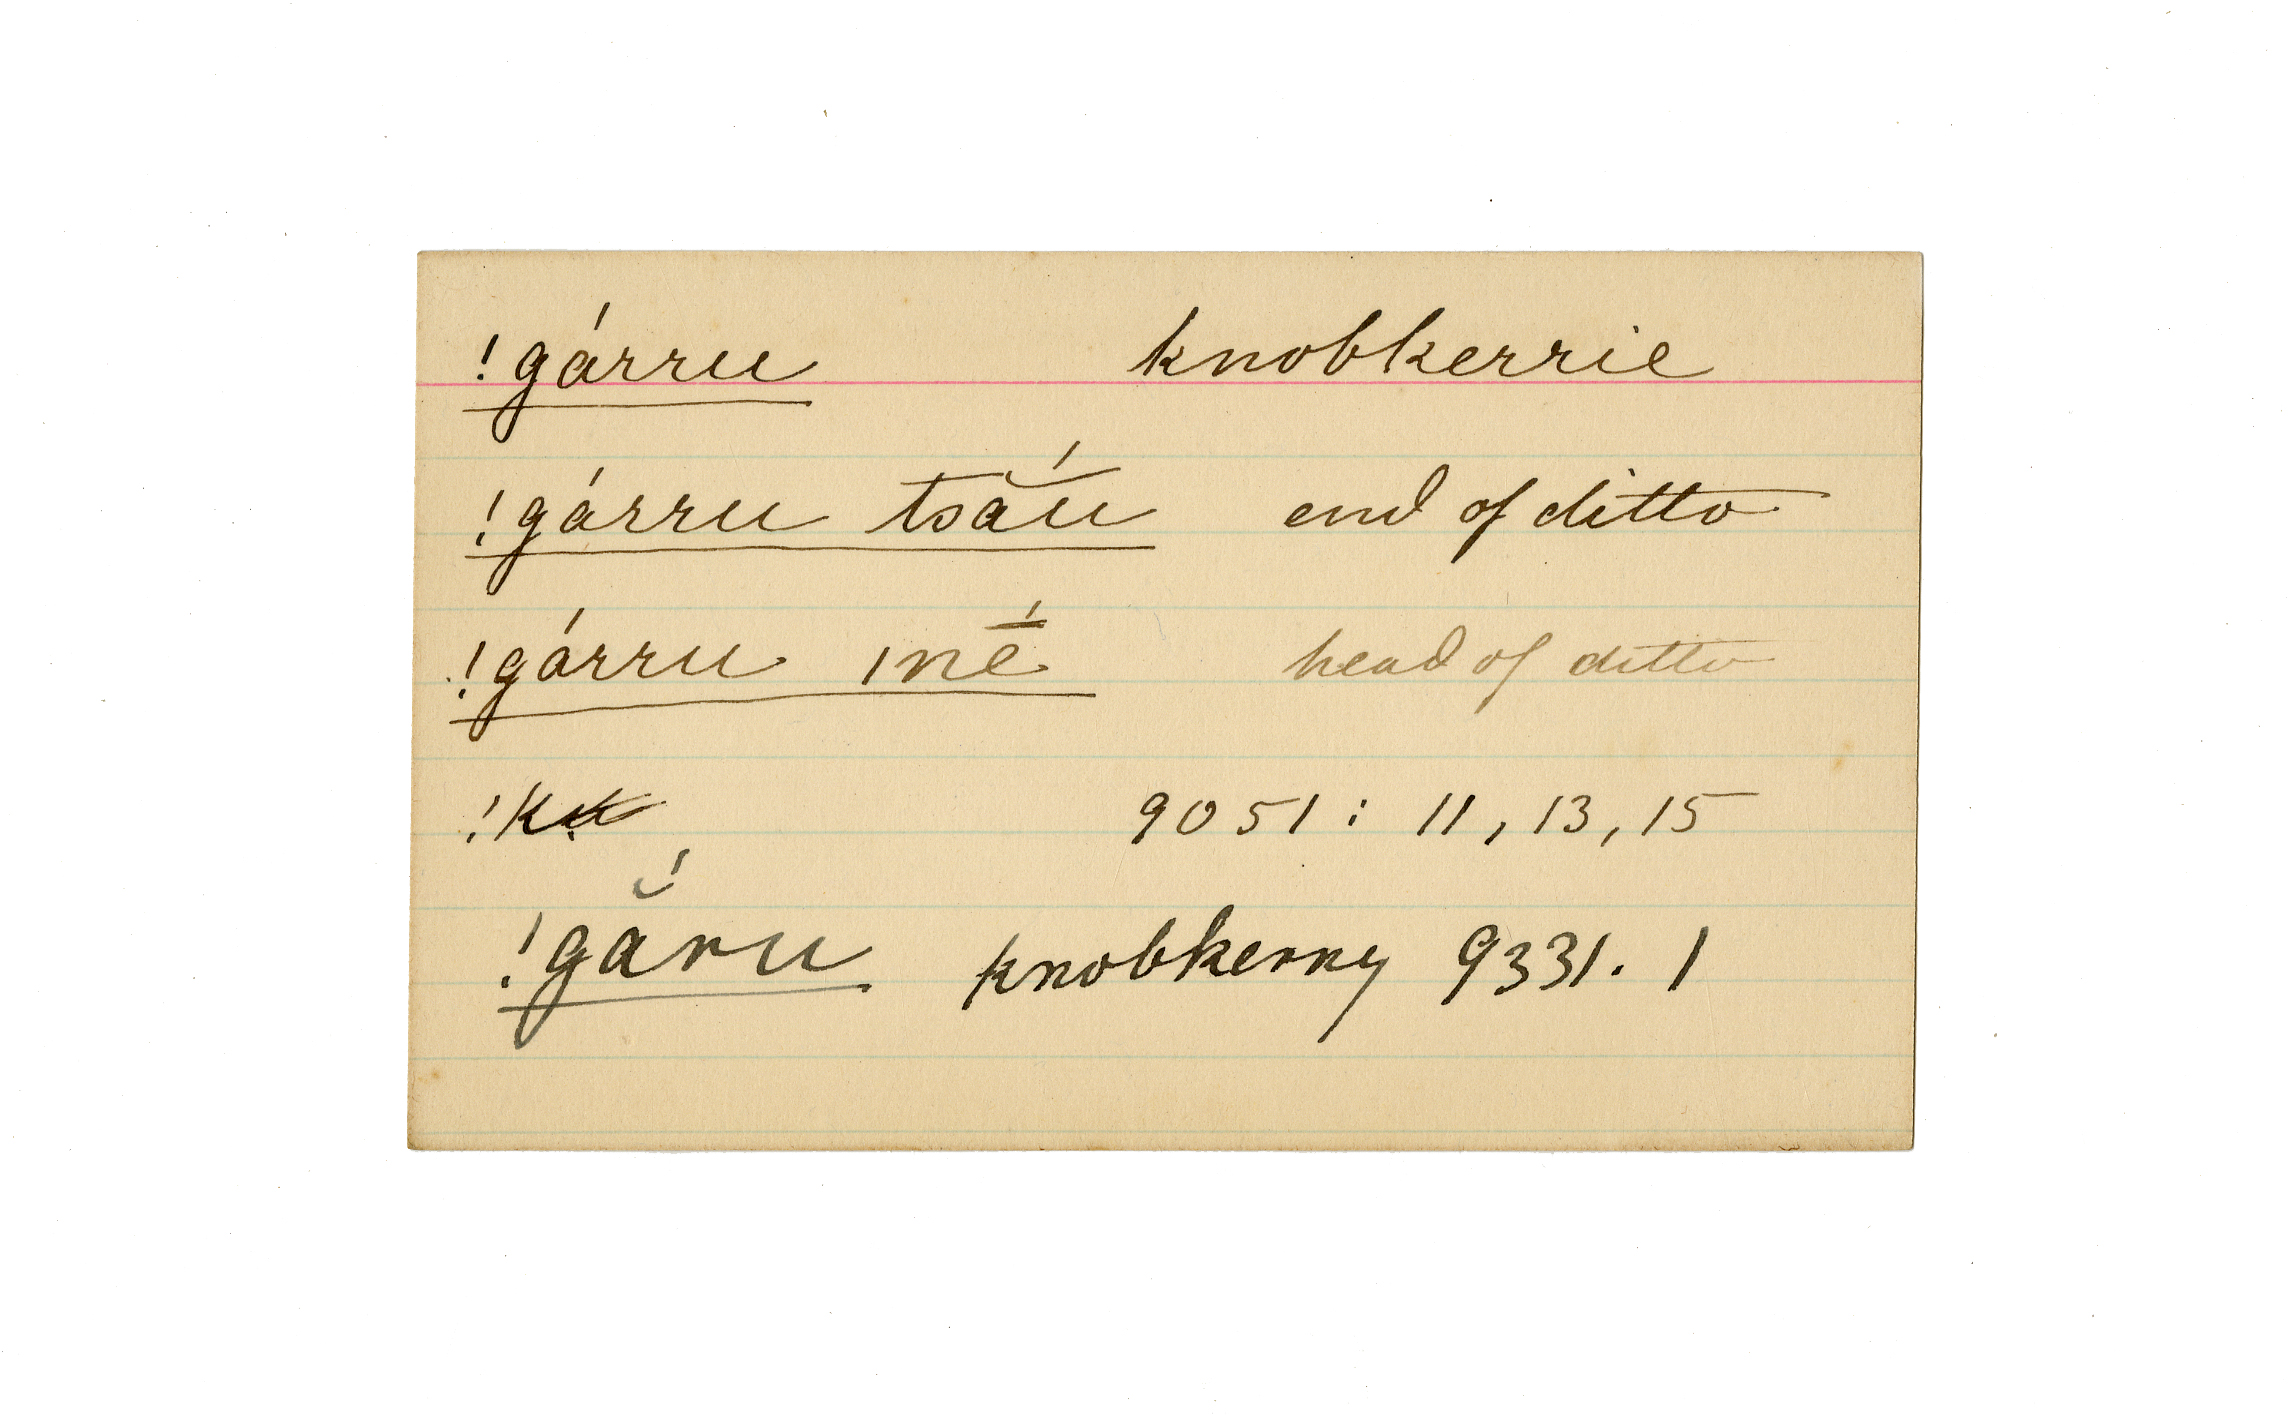 !gárru knobkerrie
!gárru tsắu end of ditto
!gárru ıné̄ head of ditto
!k 9051 : 11, 13, 15
!gắru knobkerry 9331. 1